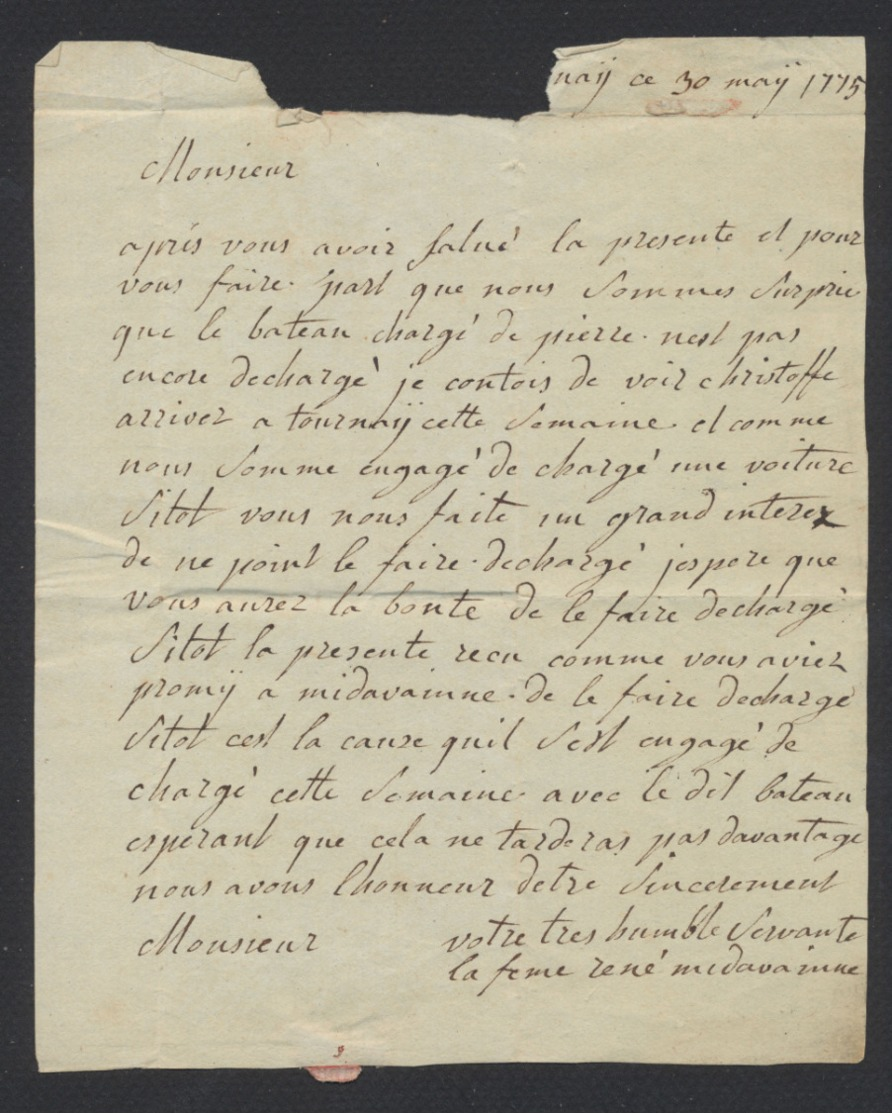 naÿ ce 30 maÿ 1775
Monsieur
apris vous avoir salué la presente et pour
vous faire part que nous sommes surpris
que le bateau chargé de pierre nest pas
encore dechargé je contois de voir christoffe
arriver a tournaÿ cette semaine et comme
nous somme engagé de chargé une voiture
sitot vous nous faite un grand interex
de ne point le faire dechargé jespere que
vous aurez la bonte de le faire dechargé
sitot la presente recu comme vous aviez
promÿ a midavainne de le faire dechargé
sitot cest la cause quil sest engagé de
chargé cette semaine avec le dit bateau
esperant que cela ne tarderas pas davantage
nous avons lhonneur detre sincerement
Monsieur votre tres humble servante
la feme rené midavainne